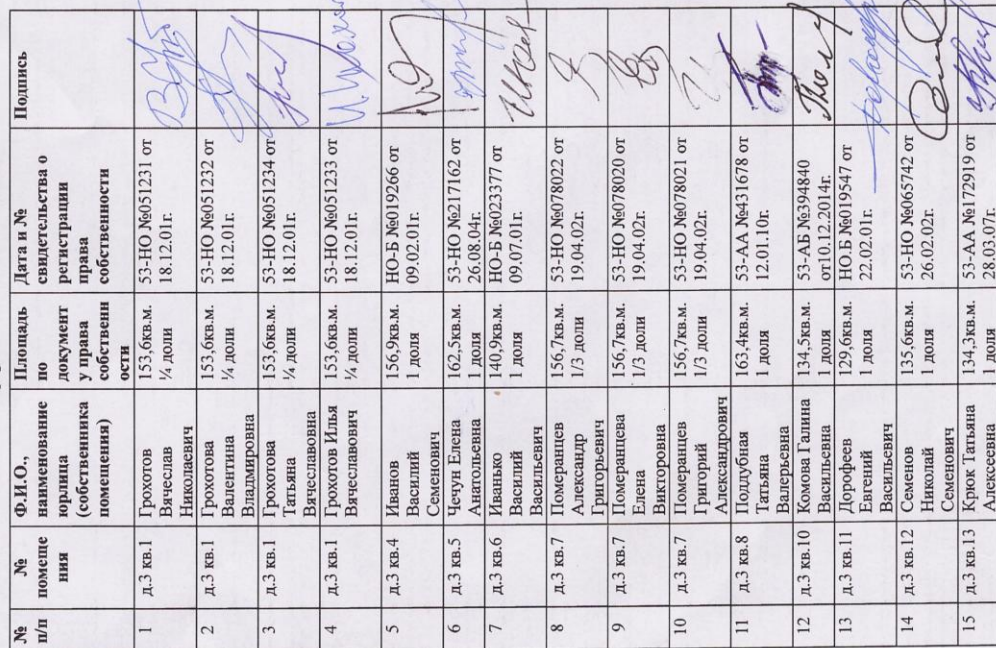 № п/п
№ помеще ния
Ф.И.О., наименование юрлица (собственника помещения)
Площадь по документ у права собственн ости
Дата и № свидетельства о регистрации права собственности
Подпись
1 д.3 кв.1 Грохотов Вячеслав Николаевич 153,6кв.м. ¼ доли 53-НО №051231 от 18.12.01г.
2 д.3 кв.1 Грохотова Валентина Владмировна 153,6кв.м. ¼ доли 53-НО №051232 от 18.12.01г.
3 д.3 кв.1 Грохотова Татьяна Вячеславовна 153,6кв.м. ¼ доли 53-НО №051234 от 18.12.01г.
4 д.3 кв.1 Грохотов Илья Вячеславович 153,6кв.м. ¼ доли 53-НО №051233 от 18.12.01г.
5 д.3 кв.4 Иванов Василий Семенович 156,9кв.м. 1 доля НО-Б №019266 от 09.02.01г.
6 д.3 кв.5 Чечун Елена Анатольевна 162,5кв.м. 1 доля 53-НО №217162 от 26.08.04г.
7 д.3 кв.6 Иванько Василий Васильевич 140,9кв.м. 1 доля НО-Б №023377 от 09.07.01г.
8 д.3 кв.7 Померанцев Александр Григорьевич 156,7кв.м. 1/3 доли 53-НО №078022 от 19.04.02г.
9 д.3 кв.7 Померанцева Елена Викторовна 156,7кв.м. 1/3 доли 53-НО №078020 от 19.04.02г.
10 д.3 кв.7 Померанцев Григорий Александрович 156,7кв.м. 1/3 доли 53-НО №078021 от 19.04.02г.
11 д.3 кв.8 Поддубная Татьяна Валерьевна 163,4кв.м. 1 доля 53-АА №431678 от 12.01.10г.
12 д.3 кв.10 Комова Галина Васильевна 134,5кв.м. 1 доля 53-АБ №394840 от10.12.2014г.
13 д.3 кв.11 Дорофеев Евгений Васильевич 129,6кв.м. 1 доля НО.Б №019547 от 22.02.01г.
14 д.3 кв.12 Семенов Николай Семенович 135,6кв.м. 1 доля 53-НО №065742 от 26.02.02г.
15 д.3 кв.13 Крюк Татьяна Алексеевна 134,3кв.м. 1 доля 53-АА №172919 от 28.03.07г.